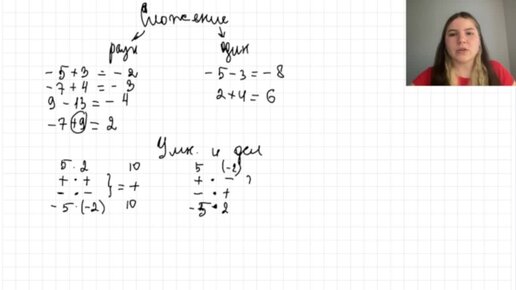 Сложение
разн один
-5+3=-2 -5-3=-8
-7+4=-3 2+4=6
9-13=-4
-7+9=2
Умн. и дел
5·2 10 5 (-2)
+ · + } = + + · -
- · - - · +
-5·(-2) 10 -5·2